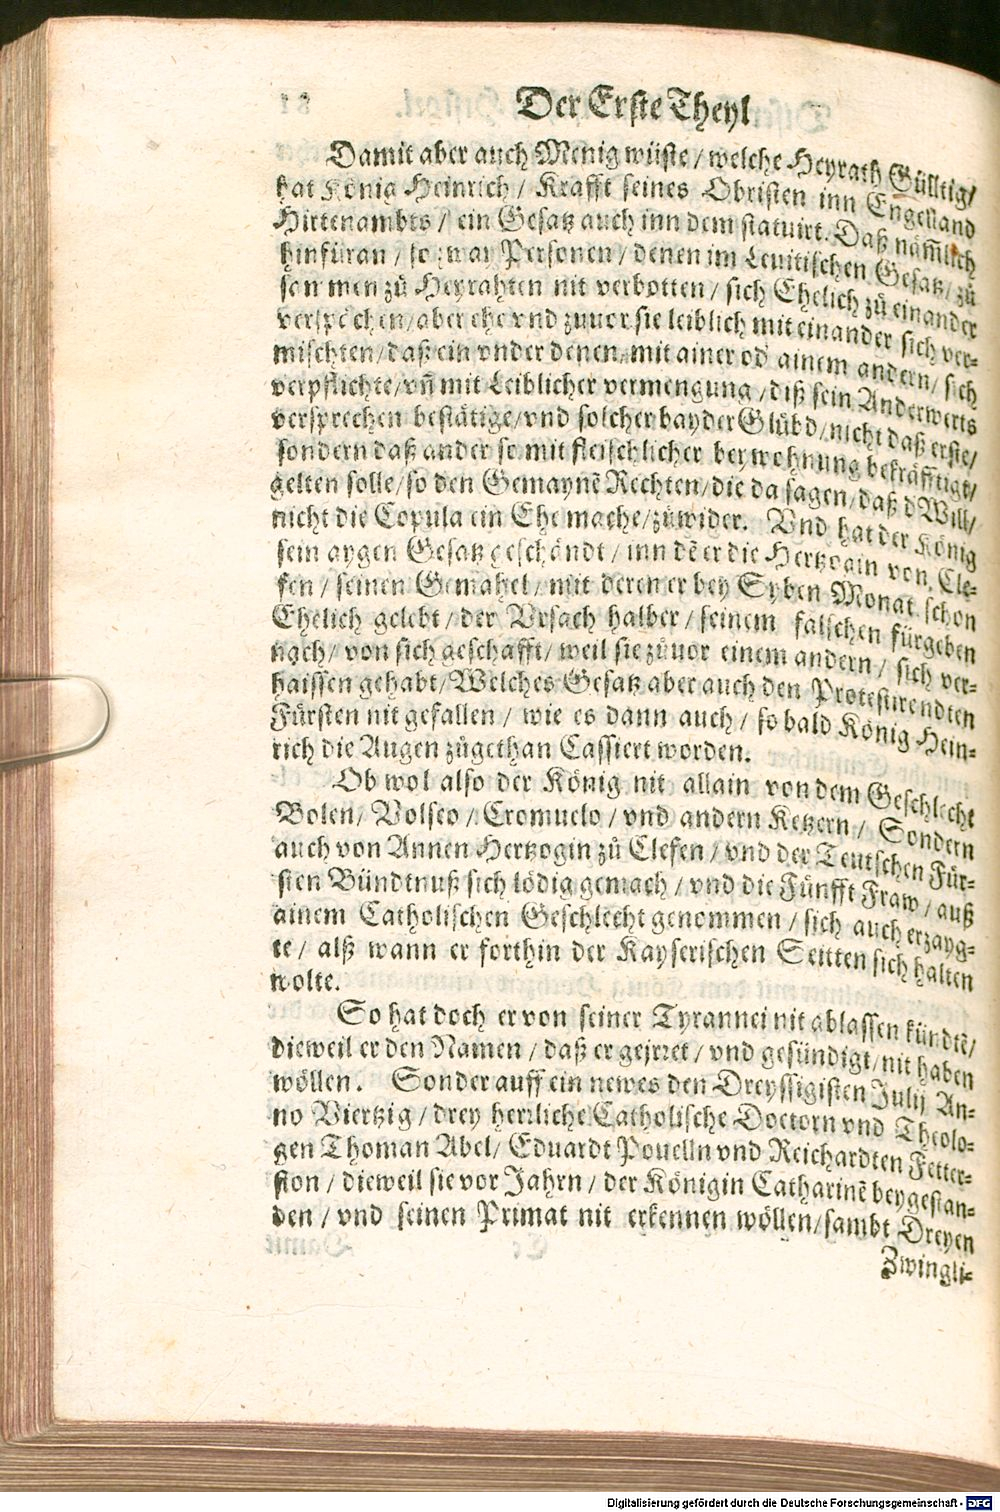 Der Erste Theyl
Damit aber auch Menig wüste / welche Heyrath Gülltig/
hat König Heinrich / Krafft seines Obristen inn Engelland
Hirtenambts / ein Gesatz auch inn dem statuirt. Daß näm̃lich
hinfüran / so zway Personen / denen im Leuitischen Gesatz / zů
samen zů Heyrahten nit verbotten / sich Ehelich zů einander
verspechen / aber ehe vnd zuuor sie leiblich mit einander sich ver-
mischten / daß ein vnder denen / mit ainer od ainem andern / sich
verpflichte / vñ mit Leiblicher vermengung / diß sein Anderwerts
versprechen bestätige / vnd solcher bayder Glübd / nicht daß erste /
sondern daß ander so mit fleischlicher beywohnung bekräfftigt /
gelten solle / so den Gemaynẽ Rechten / die da sagen / daß d Will /
nicht die Copula ein Ehe mache / zůwider. Vnd hat der König
sein aygen Gesatz geschändt / inn dẽ er die Hertzogin von Cle-
fen / seinen Gemahel / mit deren er bey Syben Monat schon
Ehelich gelebt / der Vrsach halber / seinem falschen fürgeben
nach / von sich geschafft / weil sie zůuor einem andern / sich ver-
haissen gehabt / Welches Gesatz aber auch den Protestirendten
Fürsten nit gefallen / wie es dann auch / so bald König Hein-
rich die Augen zůgethan Cassiert worden.
Ob wol also der König nit allain von dem Geschlecht
Bolen / Volseo / Cromuelo / vnd andern Ketzern / Sondern
auch von Annen Hertzogin zů Clefen / vnd der Teutschen Für-
sten Bündtnuß sich lödig gemach / vnd die Fünfft Fraw / auß
ainem Catholischen Geschlecht genommen / sich auch erzayg-
te / alß wann er forthin der Kayserischen Seitten sich halten
wolte.
So hat doch er von seiner Tyrannei nit ablassen kündtẽ /
dieweil er den Namen / daß er gejrret / vnd gesündigt / nit haben
wöllen. Sonder auff ein newes den Dreyssigisten Julij An-
no Viertzig / drey herrliche Catholische Doctorn vnd Theolo-
gen Thoman Abel / Eduardt Pouelln vnd Reichardten Fetter-
ston / dieweil sie vor Jahrn / der Königin Catharinẽ beygestan-
den / vnd seinen Primat nit erkennen wöllen / sambt Dreyen
Zwingli-
Digitalisierung gefördert durch die Deutsche Forschungsgemeinschaft - DFG